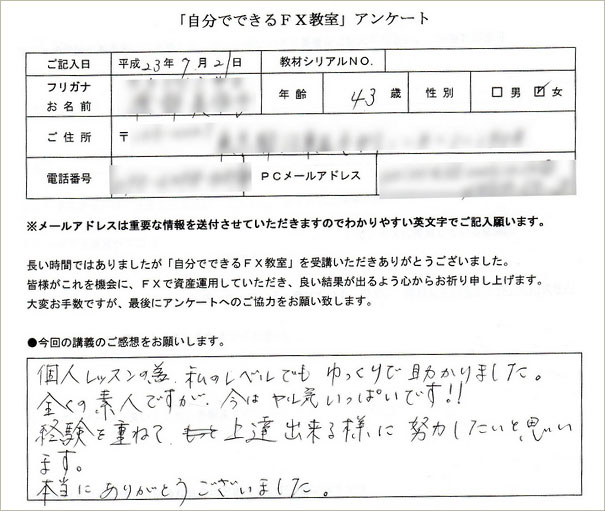 「自分でできるＦＸ教室」アンケート
ご記入日 平成23年7月21日 教材シリアルＮＯ．
フリガナ
お名前 年齢 43歳 性別 □男 ☑女
ご住所 〒
電話番号 ＰＣメールアドレス
※メールアドレスは重要な情報を送付させていただきますのでわかりやすい英文字でご記入願います。
長い時間ではありましたが「自分でできるＦＸ教室」を受講いただきありがとうございました。
皆様がこれを機会に、ＦＸで資産運用していただき、良い結果が出るよう心からお祈り申し上げます。
大変お手数ですが、最後にアンケートへのご協力をお願い致します。
●今回の講義のご感想をお願いします。
個人レッスンの為、私のレベルでも ゆっくりで助かりました。
全くの素人ですが、今は ヤル気いっぱいです!!
経験を重ねて、もっと上達出来る様に 努力したいと思い
ます。
本当に ありがとうございました。